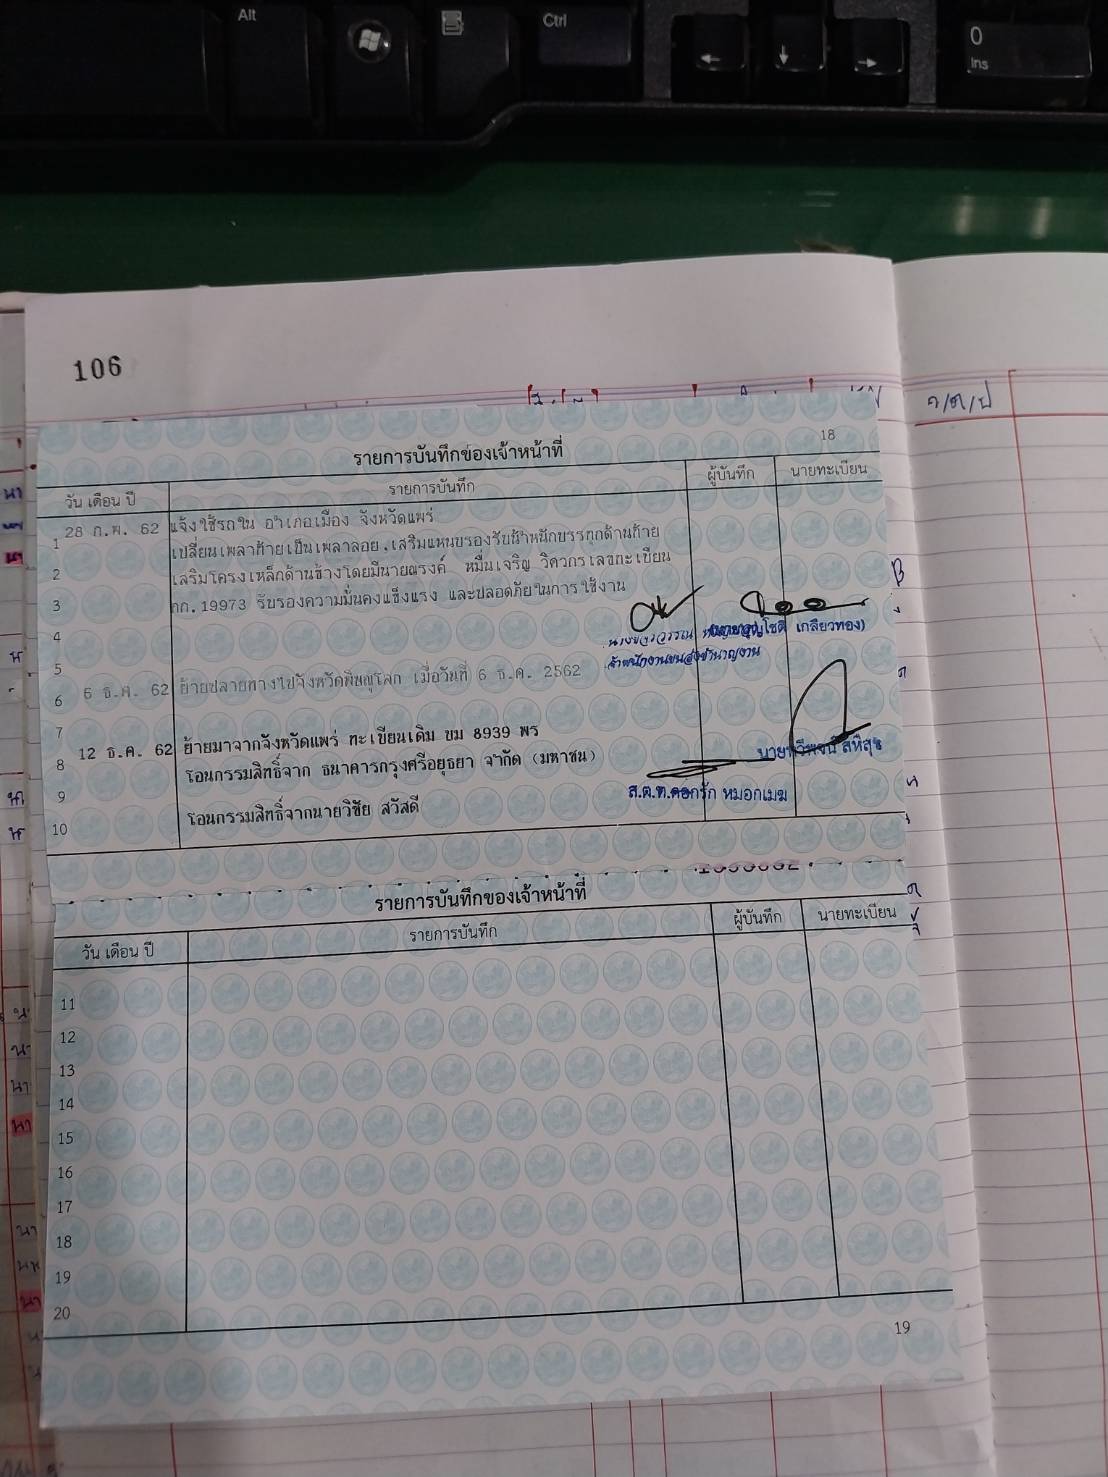 Alt
Ctrl
0
Ins
106
ว/ด/ป
18
รายการบันทึกของเจ้าหน้าที่
วัน เดือน ปี
รายการบันทึก
ผู้บันทึก
นายทะเบียน
28 ก.พ. 62 แจ้งใช้รถใน อำเภอเมือง จังหวัดแพร่
1
เปลี่ยนเพลาท้ายเป็นเพลาลอย,เสริมแหนบรองรับน้ำหนักบรรทุกด้านท้าย
2
เสริมโครงเหล็กด้านข้างโดยมีนายณรงค์ หมื่นเจริญ วิศวกรเลขทะเบียน
3
กก.19973 รับรองความมั่นคงแข็งแรง และปลอดภัยในการใช้งาน
4
เกลียวทอง)
เจ้าพนักงานขนส่งชำนาญงาน
5
6
6 ธ.ค. 62 ย้ายปลายทางไปจังหวัดพิษณุโลก เมื่อวันที่ 6 ธ.ค. 2562
7
12 ธ.ค. 62 ย้ายมาจากจังหวัดแพร่ ทะเบียนเดิม บม 8939 พร
8
โอนกรรมสิทธิ์จาก ธนาคารกรุงศรีอยุธยา จำกัด (มหาชน)
9
ส.ต.ท.ดอกรัก หมอกเมฆ
โอนกรรมสิทธิ์จากนายวิชัย สวัสดี
10
รายการบันทึกของเจ้าหน้าที่
วัน เดือน ปี
รายการบันทึก
ผู้บันทึก
นายทะเบียน
11
12
13
14
15
16
17
18
19
20
19